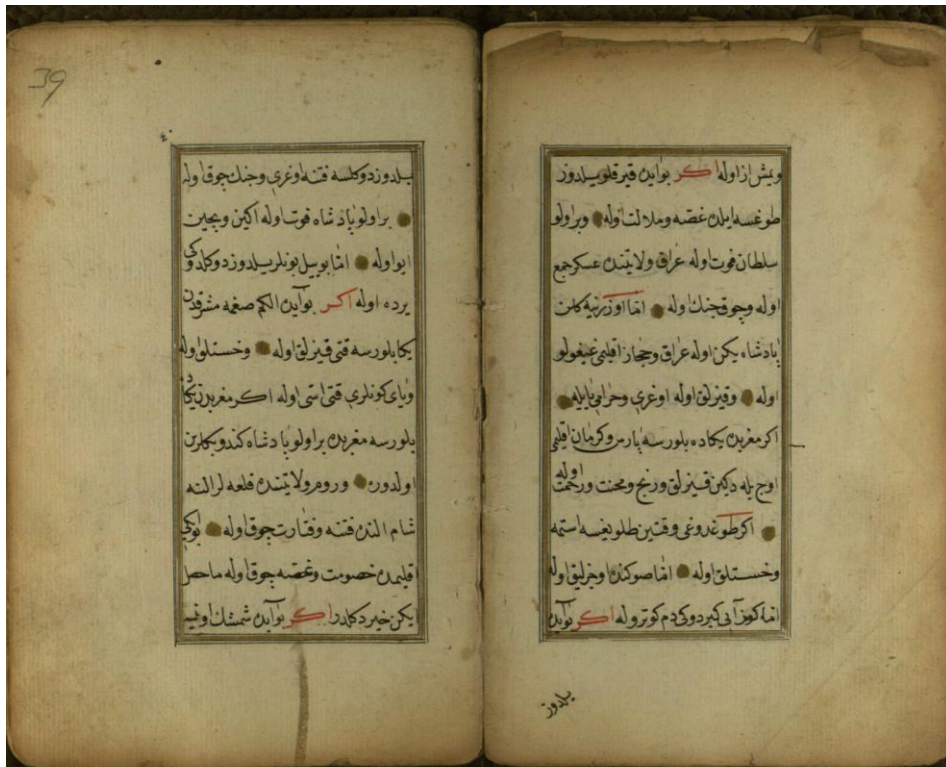 ویش از اوله اکر بو ایده قیرقلو یلدوز
طوغسه ایلده غصه و ملالت اوله و بر اولو
سلطان فوت اوله عراق ولایتنده عسکر جمع
اوله و چوق جنك اوله امّا اوزرنیه کلن
پادشاه یکن اوله عراق و حجاز اقلیمی غیغولو
اوله و قیزلق اوله اوغری و حرامی یایله
اکر مغربده یکا ده بلورسه پارس و کرمان اقلیمی
اوج ییله دکین قیزلق و رنج و محنت و زحمت اوله
اکر طوغدوغی وقتین طلو یغسه استمه
و خستلق اوله امّا صوکنده اوجزلیق اوله
امّا کوز آیی کیردوکی دم کوتروله اکر بو آیده
یلدوز
39
٤٠
یلدوز دوکلسه فتنه اوغری و جنك چوق اوله
بر اولو پادشاه فوت اوله اکین و بچین
ایو اوله امّا بو ییل بونلر یلدوز دوکلدوکی
یرده اوله اکر بو آیده الکم صغمه مشرقدن
یکا بلورسه قتی قیزلق اوله و خستلق اوله
و یای کونلری قتی اسّی اوله اکر مغربدن یکا
بلورسه مغربده بر اولو پادشاه کندو بکلرین
اولدورن و روم ولایتنده قلعه لر النه
شام النده فتنه و غارت چوق اوله بو ایکی
اقلیمده خصومت و غصه چوق اوله ما حصل
یکن خیر دکلدر اکر بو آیده شمشك اوینیه